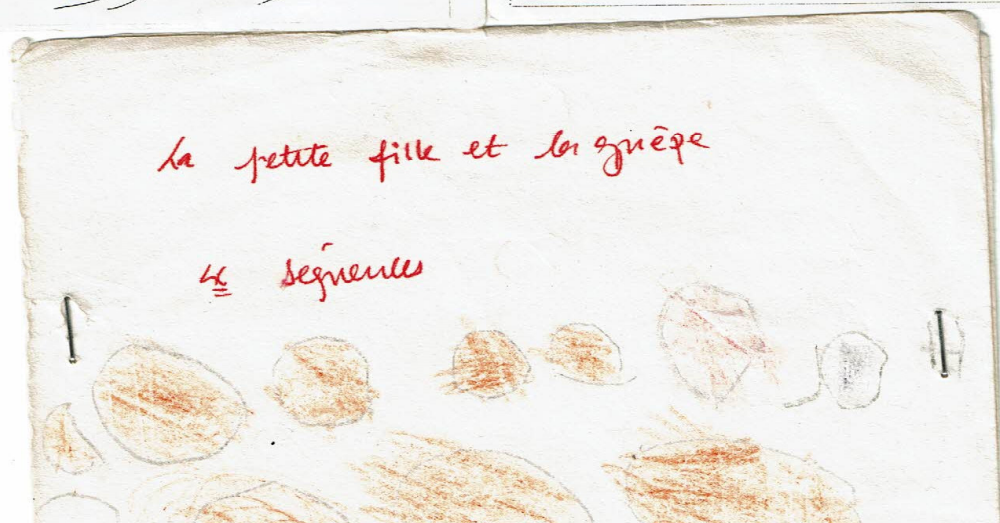 La petite fille et la guêpe
séquences